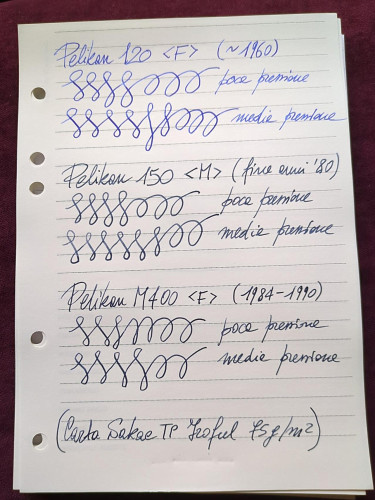 Pelikan 120 <F> (~1960)
poca pressione
media pressione
Pelikan 150 <M> (fine anni '80)
poca pressione
media pressione
Pelikan M400 <F> (1984-1990)
poca pressione
media pressione
(Carta Sakae TP Iroful 75g/m²)